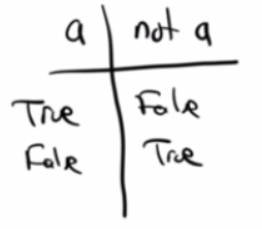 a not a
True False
False True